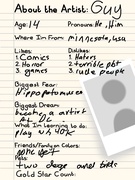 About the Artist: Guy
Age: 14 Pronouns: He, Him
Where I'm From: minnesota, usa
Likes: Dislikes:
1. Comics 1. Haters
2. Horror 2. terrible ppl
3. games 3. rude people
Biggest Fear:
Hippopotamuses
Biggest Dream:
becoming a artist
What I'm Learning to do:
play uh
Friends/Family or Colors:
Pets:
two dogs and birds
Gold Star Count: